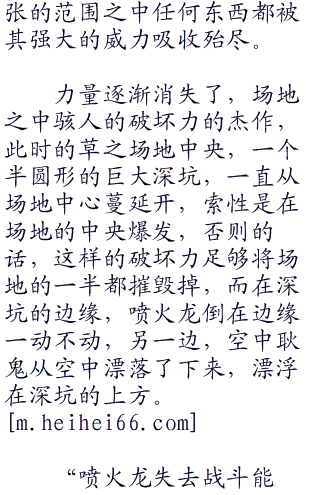 张的范围之中任何东西都被
其强大的威力吸收殆尽。
力量逐渐消失了，场地
之中骇人的破坏力的杰作，
此时的草之场地中央，一个
半圆形的巨大深坑，一直从
场地中心蔓延开，索性是在
场地的中央爆发，否则的
话，这样的破坏力足够将场
地的一半都摧毁掉，而在深
坑的边缘，喷火龙倒在边缘
一动不动，另一边，空中耿
鬼从空中漂落了下来，漂浮
在深坑的上方。
[m.heihei66.com]
“喷火龙失去战斗能